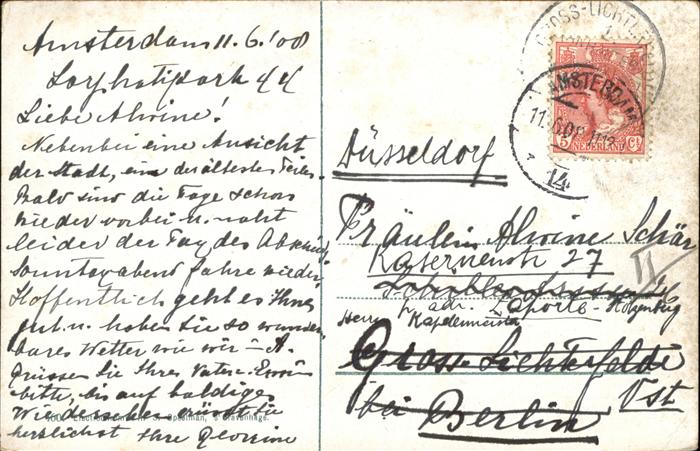 Amsterdam 11.6.'08
Sarphatipark 44
Liebe Alwine!
Nebenbei eine Ansicht
der Stadt, eine der ältesten Teile.
Bald sind die Tage schon
wieder vorbei u. naht
leider der Tag des Abschieds
Sonntag abend fahre wieder.
Hoffentlich geht es Ihnen
gut u. haben Sie so wunder
bares Wetter wie wir
Grüssen Sie Ihren Vater
bitte, bis auf baldiges
Wiedersehen grüsst Sie
herzlichst Ihre
Spoelman, 's Gravenhage.
GROSS-LICHTERFELDE
AMSTERDAM
11.6.08
14
5 Ct
NEDERLAND
Düsseldorf
Fräulein Alwine Schär
Kasernenstr 27
adr.
Herrn Kapellmeister
Gross Lichterfelde
Ost
bei Berlin
II